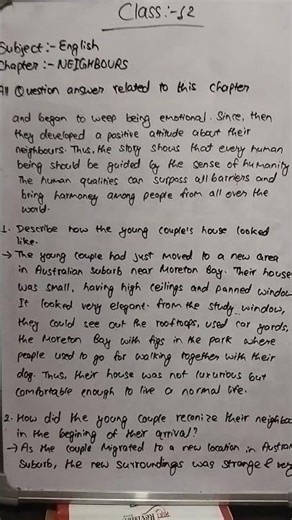 Class:-12
Subject:- English
Chapter:- NEIGHBOURS
All Question answer related to this chapter
and began to weep being emotional. Since, then
they developed a positive attitude about their
neighbours. Thus, the story shows that every human
being should be guided by the sense of humanity
The human qualities can surpass all barriers and
bring harmoney among people from all over the
world.
1. Describe how the young couple's house looked
like.
→ The young couple had just moved to a new area
in Australian suborb near Moreton Bay. Their house
was small, having high ceilings and panned window
It looked very elegant. from the study window,
they could see out the rooftops, used car yards,
the Moreton Bay with figs in the park where
people used to go for walking together with their
dog. Thus, their house was not luxurious but
comfortable enough to live a normal life.
2. How did the young couple reconize their neighbo
in the begining of their arrival?
→ As the couple Migrated to a new location in Austra
Suborb, the new surroundings was strange & very